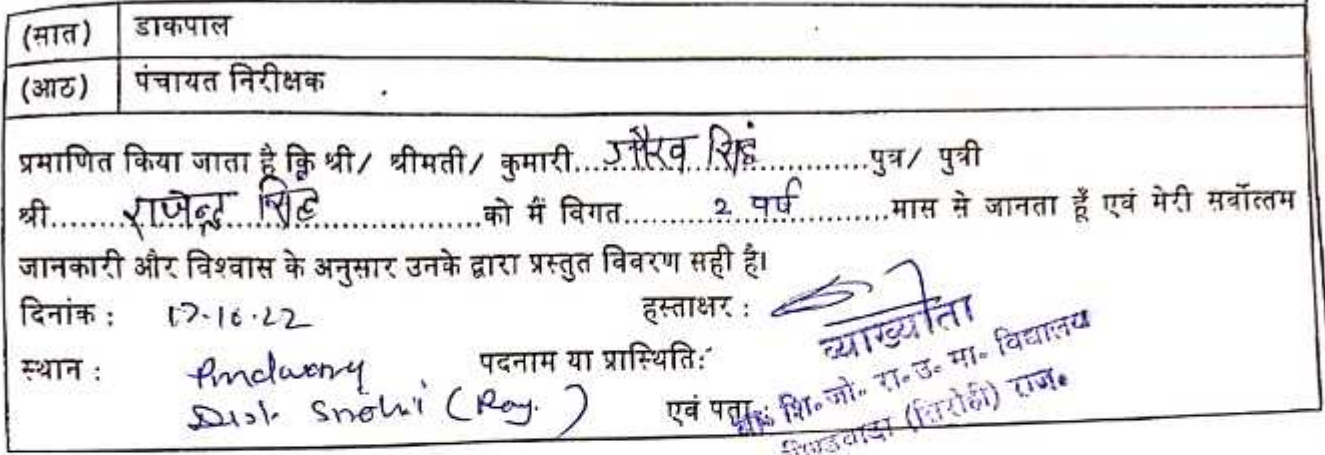 (सात) डाकपाल
(आठ) पंचायत निरीक्षक
प्रमाणित किया जाता है कि श्री/ श्रीमती/ कुमारी...गौरव सिंह...............पुत्र/ पुत्री
श्री........राजेन्द्र सिंह.......................को मैं विगत............2 वर्ष............मास से जानता हूँ एवं मेरी सर्वोत्तम
जानकारी और विश्वास के अनुसार उनके द्वारा प्रस्तुत विवरण सही है।
दिनांक : 17-10-22 हस्ताक्षर :
व्याख्याता
स्थान : Pindwara पदनाम या प्रास्थिति:
Dist. Sirohi (Raj.) एवं पता: शि॰ जो॰ रा॰ उ॰ मा॰ विद्यालय
पिण्डवाडा (सिरोही) राज॰